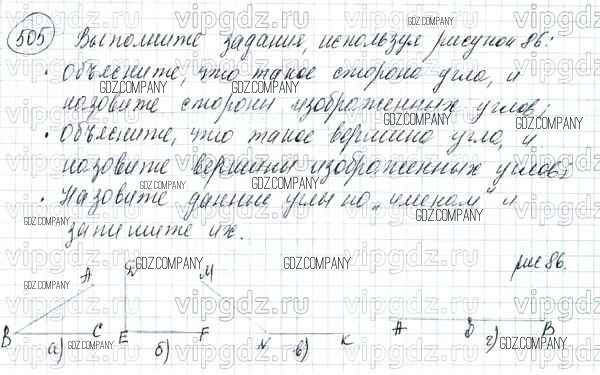 505 Выполните задания, используя рисунок 86:
• Объясните, что такое сторона угла, и
назовите стороны изображенных углов;
• Объясните, что такое вершина угла, и
назовите вершины изображенных углов;
• Назовите данные углы по „именам" и
запишите их.
рис 86.
A D M
B C E F N K A б B
а) б) в) г)
vipgdz.ru
GDZ.COMPANY